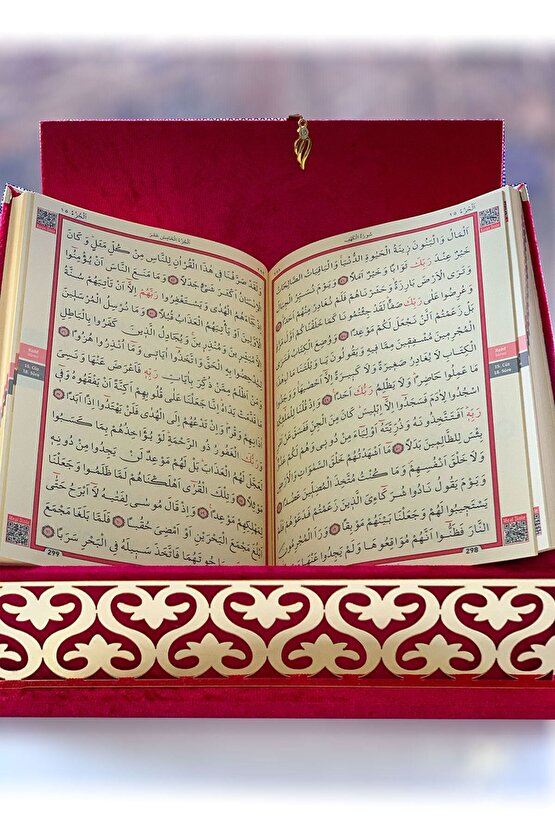 اَلْجُزْءُ ١٥
سُورَةُ الْكَهْفِ
اَلْمَالُ وَالْبَنُونَ زِينَةُ الْحَيٰوةِ الدُّنْيَا وَالْبَاقِيَاتُ الصَّالِحَاتُ
خَيْرٌ عِنْدَ رَبِّكَ ثَوَابًا وَخَيْرٌ اَمَلًا وَيَوْمَ نُسَيِّرُ الْجِبَالَ
وَتَرَى الْاَرْضَ بَارِزَةً وَحَشَرْنَاهُمْ فَلَمْ نُغَادِرْ مِنْهُمْ اَحَدًا
وَعُرِضُوا عَلٰى رَبِّكَ صَفًّا لَقَدْ جِئْتُمُونَا كَمَا خَلَقْنَاكُمْ اَوَّلَ مَرَّةٍ
بَلْ زَعَمْتُمْ اَلَّنْ نَجْعَلَ لَكُمْ مَوْعِدًا وَوُضِعَ الْكِتَابُ فَتَرَى
الْمُجْرِمِينَ مُشْفِقِينَ مِمَّا فِيهِ وَيَقُولُونَ يَا وَيْلَتَنَا مَالِ هٰذَا
الْكِتَابِ لَا يُغَادِرُ صَغِيرَةً وَلَا كَبِيرَةً اِلَّا اَحْصٰيهَا وَوَجَدُوا
مَا عَمِلُوا حَاضِرًا وَلَا يَظْلِمُ رَبُّكَ اَحَدًا وَاِذْ قُلْنَا لِلْمَلٰٓئِكَةِ
اسْجُدُوا لِاٰدَمَ فَسَجَدُوا اِلَّا اِبْلِيسَ كَانَ مِنَ الْجِنِّ فَفَسَقَ عَنْ اَمْرِ
رَبِّهِ اَفَتَتَّخِذُونَهُ وَذُرِّيَّتَهُ اَوْلِيَاءَ مِنْ دُونِي وَهُمْ لَكُمْ عَدُوٌّ
بِئْسَ لِلظَّالِمِينَ بَدَلًا مَا اَشْهَدْتُهُمْ خَلْقَ السَّمٰوَاتِ وَالْاَرْضِ
وَلَا خَلْقَ اَنْفُسِهِمْ وَمَا كُنْتُ مُتَّخِذَ الْمُضِلِّينَ عَضُدًا
وَيَوْمَ يَقُولُ نَادُوا شُرَكَاءِيَ الَّذِينَ زَعَمْتُمْ فَدَعَوْهُمْ فَلَمْ
يَسْتَجِيبُوا لَهُمْ وَجَعَلْنَا بَيْنَهُمْ مَوْبِقًا وَرَاَ الْمُجْرِمُونَ
النَّارَ فَظَنُّوا اَنَّهُمْ مُوَاقِعُوهَا وَلَمْ يَجِدُوا عَنْهَا
298
Kehf
Sûresi
15. Cüz
18. Sûre
اَلْجُزْءُ ١٥
اَلْجُزْءُ الْخَامِسُ عَشَرَ
وَلَقَدْ صَرَّفْنَا فِي هٰذَا الْقُرْاٰنِ لِلنَّاسِ مِنْ كُلِّ مَثَلٍ وَكَانَ
الْاِنْسَانُ اَكْثَرَ شَيْءٍ جَدَلًا وَمَا مَنَعَ النَّاسَ اَنْ يُؤْمِنُوا
اِذْ جَاءَهُمُ الْهُدٰى وَيَسْتَغْفِرُوا رَبَّهُمْ اِلَّا اَنْ تَأْتِيَهُمْ سُنَّةُ
الْاَوَّلِينَ اَوْ يَأْتِيَهُمُ الْعَذَابُ قُبُلًا وَمَا نُرْسِلُ الْمُرْسَلِينَ
اِلَّا مُبَشِّرِينَ وَمُنْذِرِينَ وَيُجَادِلُ الَّذِينَ كَفَرُوا بِالْبَاطِلِ
لِيُدْحِضُوا بِهِ الْحَقَّ وَاتَّخَذُوا اٰيَاتِي وَمَا اُنْذِرُوا هُزُوًا
وَمَنْ اَظْلَمُ مِمَّنْ ذُكِّرَ بِاٰيَاتِ رَبِّهِ فَاَعْرَضَ عَنْهَا وَنَسِيَ
مَا قَدَّمَتْ يَدَاهُ اِنَّا جَعَلْنَا عَلٰى قُلُوبِهِمْ اَكِنَّةً اَنْ يَفْقَهُوهُ وَفِي
اٰذَانِهِمْ وَقْرًا وَاِنْ تَدْعُهُمْ اِلَى الْهُدٰى فَلَنْ يَهْتَدُوا اِذًا اَبَدًا
وَرَبُّكَ الْغَفُورُ ذُو الرَّحْمَةِ لَوْ يُؤَاخِذُهُمْ بِمَا كَسَبُوا
لَعَجَّلَ لَهُمُ الْعَذَابَ بَلْ لَهُمْ مَوْعِدٌ لَنْ يَجِدُوا مِنْ دُونِهِ
مَوْئِلًا وَتِلْكَ الْقُرٰى اَهْلَكْنَاهُمْ لَمَّا ظَلَمُوا وَجَعَلْنَا
لِمَهْلِكِهِمْ مَوْعِدًا وَاِذْ قَالَ مُوسٰى لِفَتٰيهُ لَا اَبْرَحُ حَتّٰى
اَبْلُغَ مَجْمَعَ الْبَحْرَيْنِ اَوْ اَمْضِيَ حُقُبًا فَلَمَّا بَلَغَا مَجْمَعَ
حُوتَهُمَا فَاتَّخَذَ سَبِيلَهُ فِي الْبَحْرِ سَرَبًا
299
Kehf
Sûresi
15. Cüz
18. Sûre